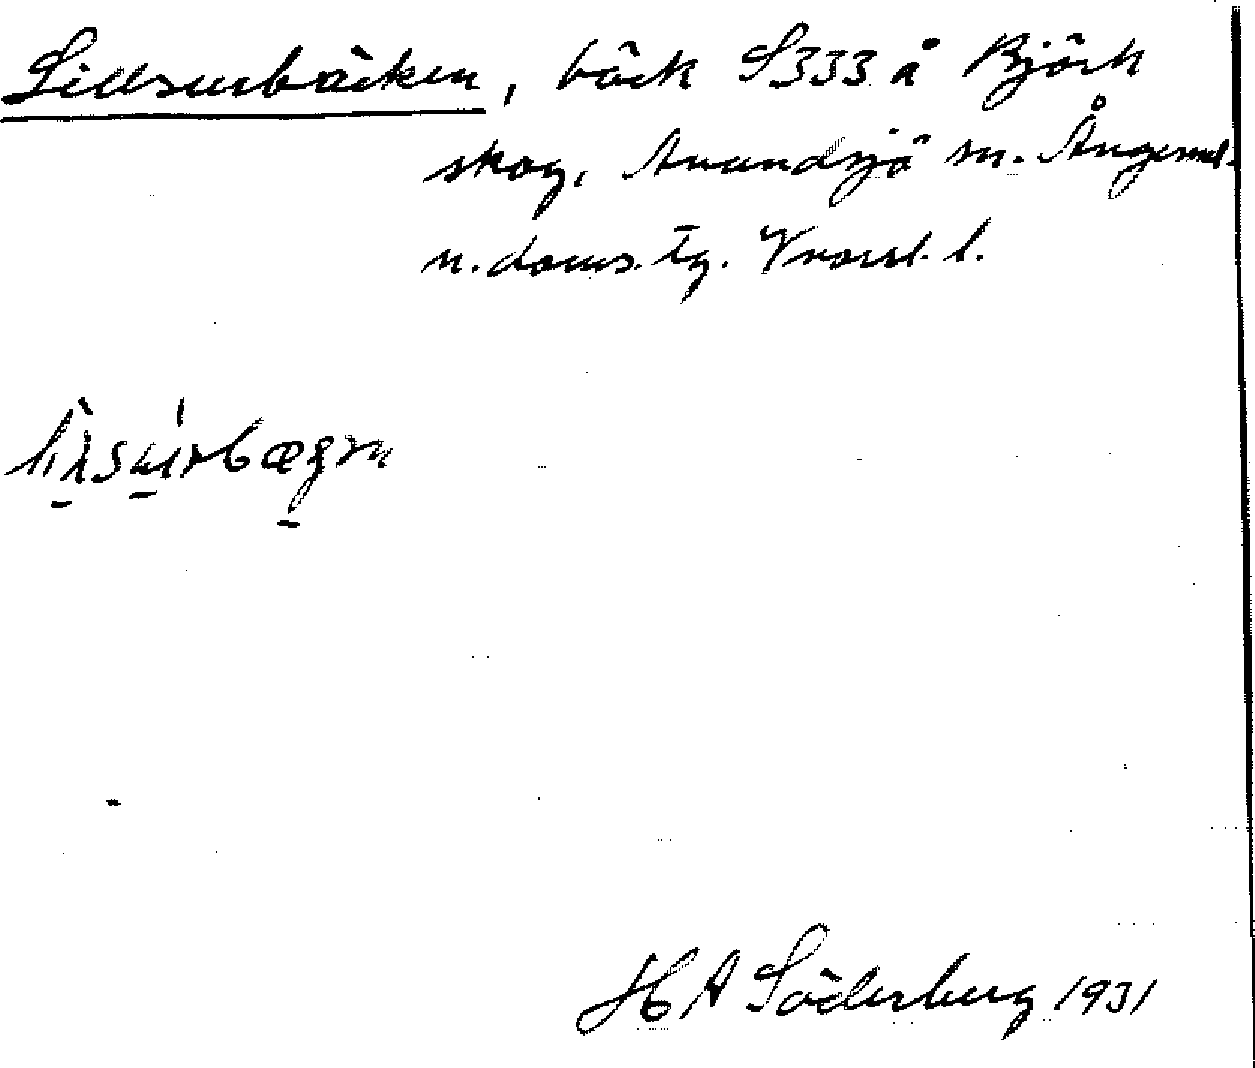 Lillsurbäcken, bäck S333 å Björk
skog, Anundsjö sn. Ångerml.
n. doms. tg. Vnorrl. l.
H A Söderberg 1931